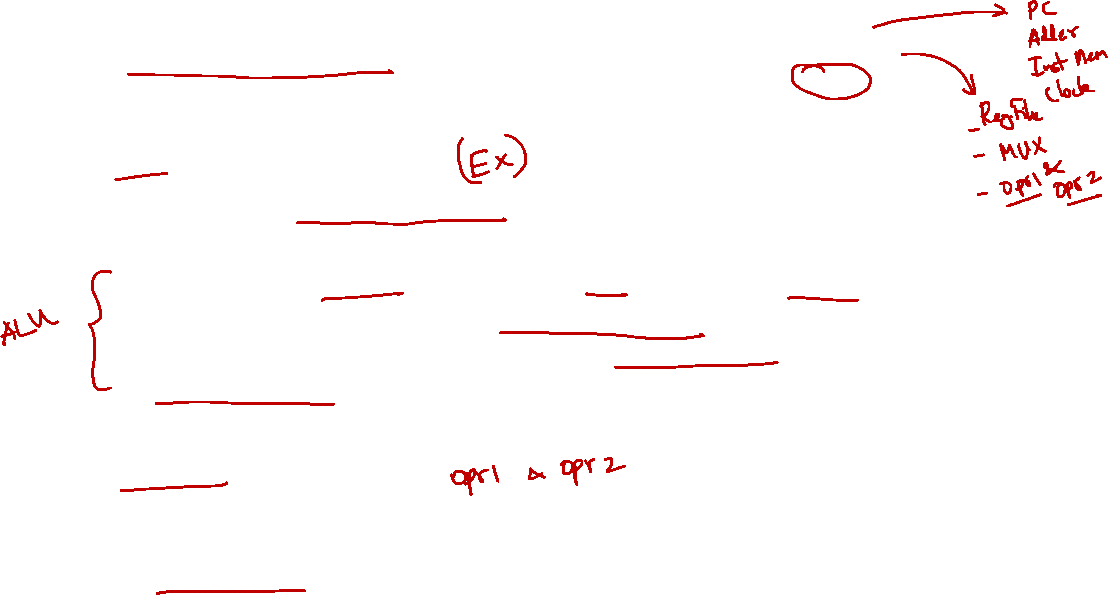 PC
Adder
Inst Mem
Clock
- RegFile
- MUX
- opr1 &
opr2
(Ex)
ALU
opr1 & opr2